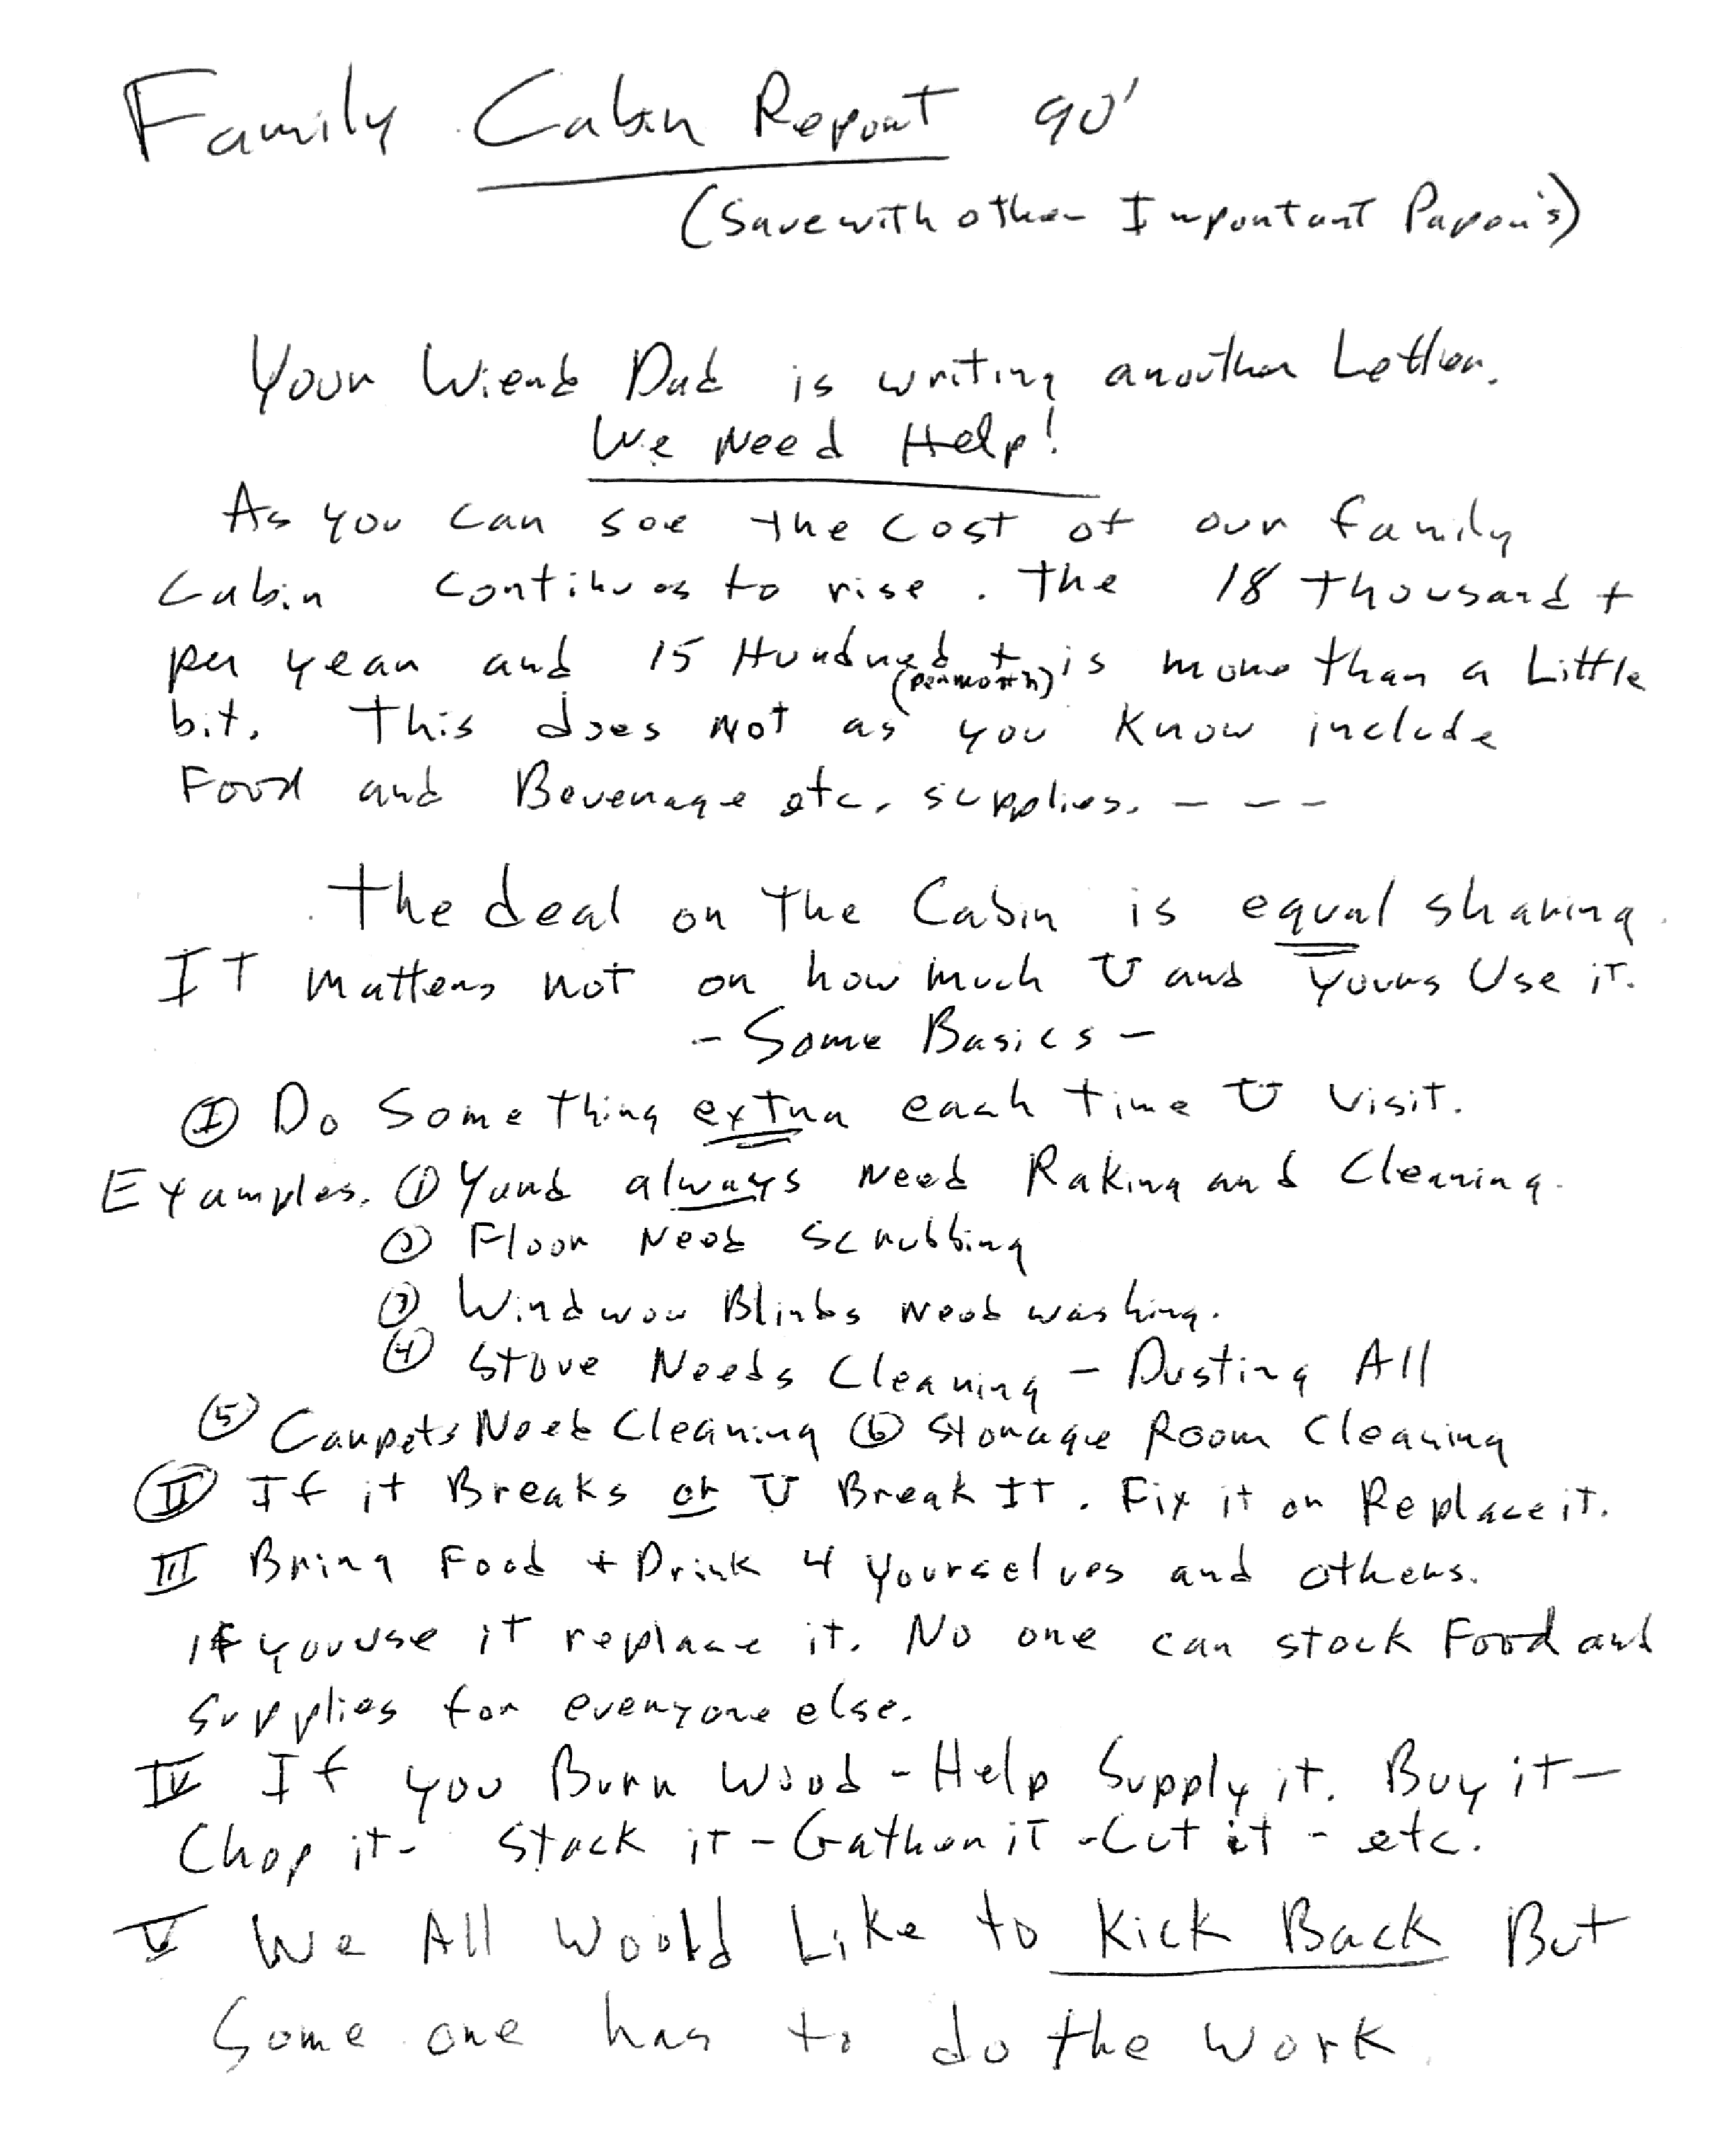 Family Cabin Report 90'
(Save with other Important Paper's)
Your Wierd Dad is writing anouther Letter.
We Need Help!
As you can see the cost of our family
Cabin continues to rise. The 18 thousand +
per year and 15 Hundred + (per month) is more than a Little
bit. This does not as you know include
Food and Beverage etc. supplies. - - -
The deal on the Cabin is equal sharing.
IT matters not on how much U and yours Use it.
- Some Basics -
I Do Something extra each time U visit.
Examples. 1 Yard always Need Raking and Cleaning.
2 Floor Need Scrubbing
3 Windwow Blinds Need washing.
4 Stove Needs Cleaning - Dusting All
5 Carpets Need Cleaning 6 Storage Room Cleaning
II If it Breaks or U Break It. Fix it or Replace it.
III Bring Food + Drink 4 yourselves and others.
If you use it replace it. No one can stock Food and
supplies for everyone else.
IV If you Burn Wood - Help Supply it. Buy it -
Chop it - Stack it - Gather it - Cut it - etc.
V We All Woold Like to Kick Back But
Some one has to do the work.